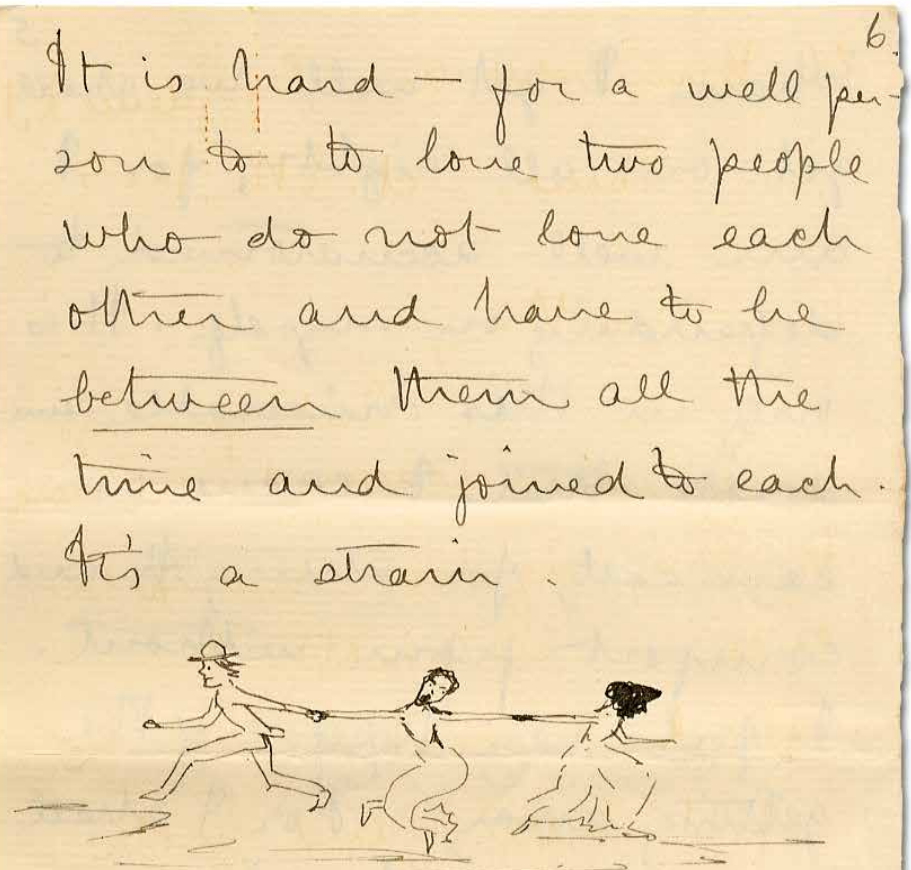 6.
It is hard — for a well per-
son to to love two people
who do not love each
other and have to be
between them all the
time and joined to each.
It's a strain.